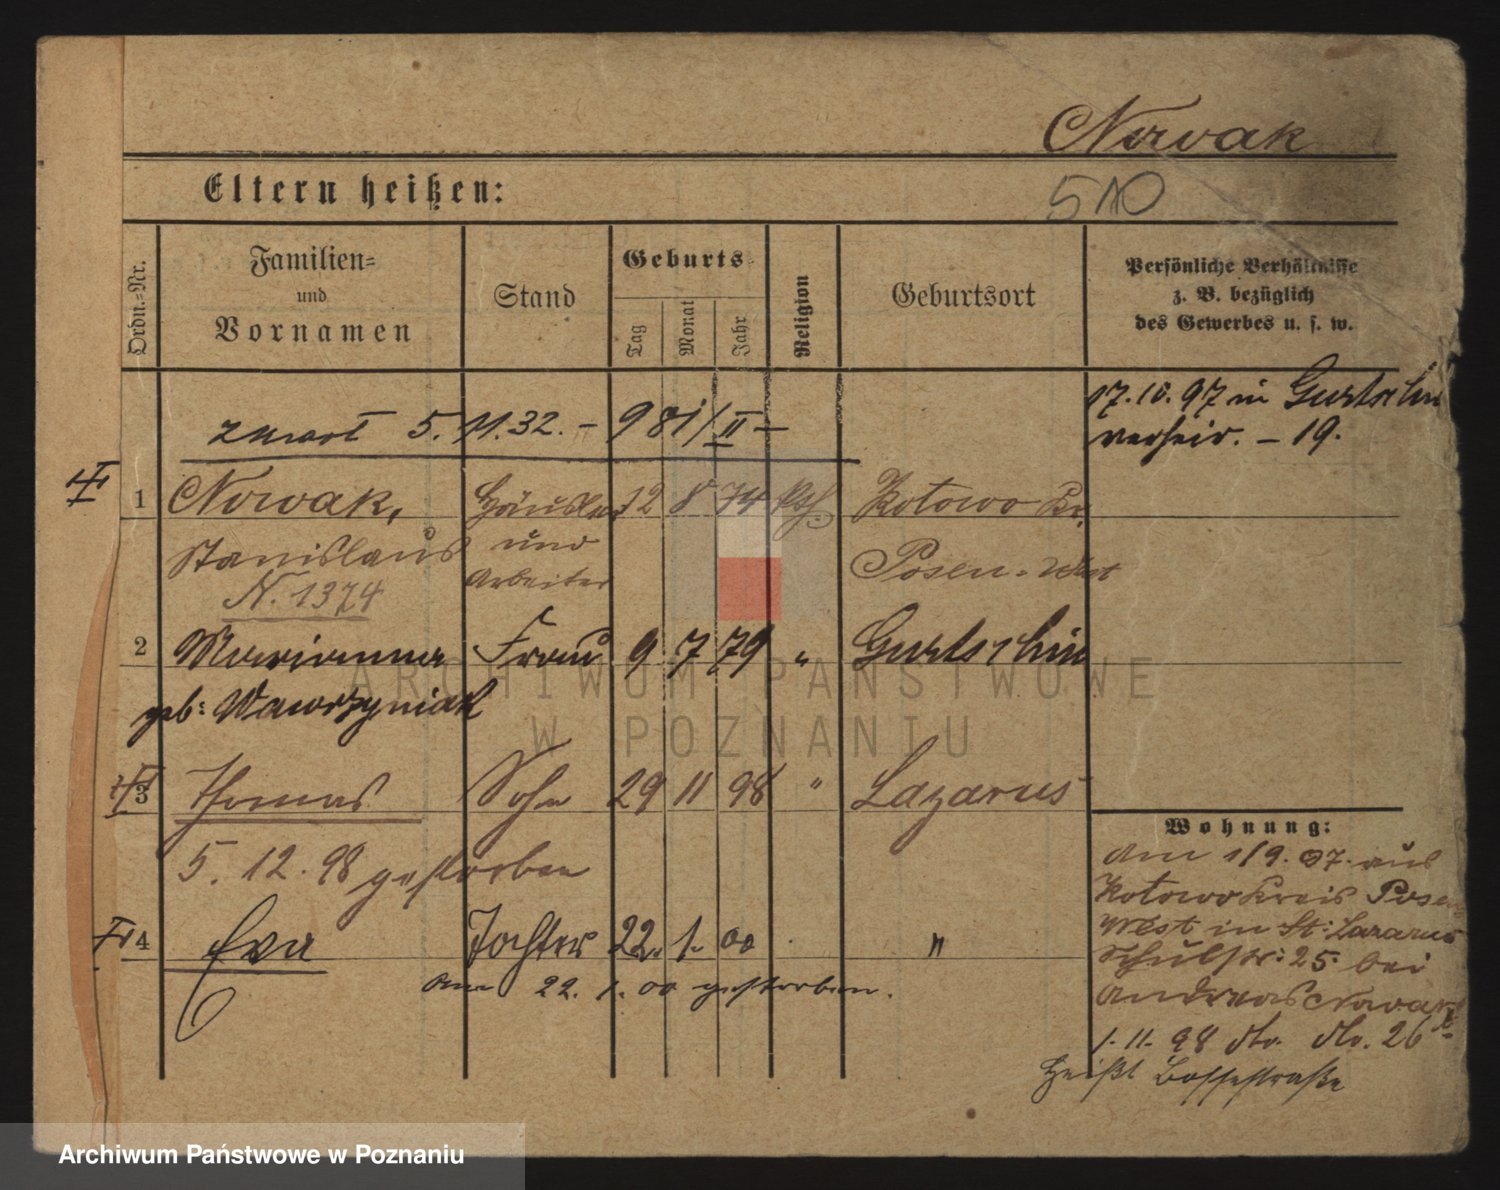 Nowak
Eltern heißen:
510
Ordn.=Nr.
Familien=
und
Vornamen
Stand
Geburts
Tag
Monat
Jahr
Religion
Geburtsort
Persönliche Verhältnisse
z. B. bezüglich
des Gewerbes u. s. w.
17.10.97 in Gurtschin
verheir. – 19.
5.11.32. – 981/II –
1 Nowak, Häusler 12 8 74 kth. Kotowo Kr.
Stanislaus und Posen-West
Arbeiter
N. 1374
2 Marianna Frau 9 7 79 " Gurtschin
geb: Wawrzyniak
3 Thomas Sohn 29 11 98 " Lazarus
5.12.98 gestorben
4 Eva Tochter 22. 1. 00 "
am 22. 1. 00 gestorben.
Wohnung:
am 1/9. 97. aus
Kotowo Kreis Posen
West in St: Lazarus
Schulstr: 25. bei
Andreas Nowak
1.11.98 dto. No. 26
Heißt Bossestraße
ARCHIWUM PAŃSTWOWE
W POZNANIU
Archiwum Państwowe w Poznaniu